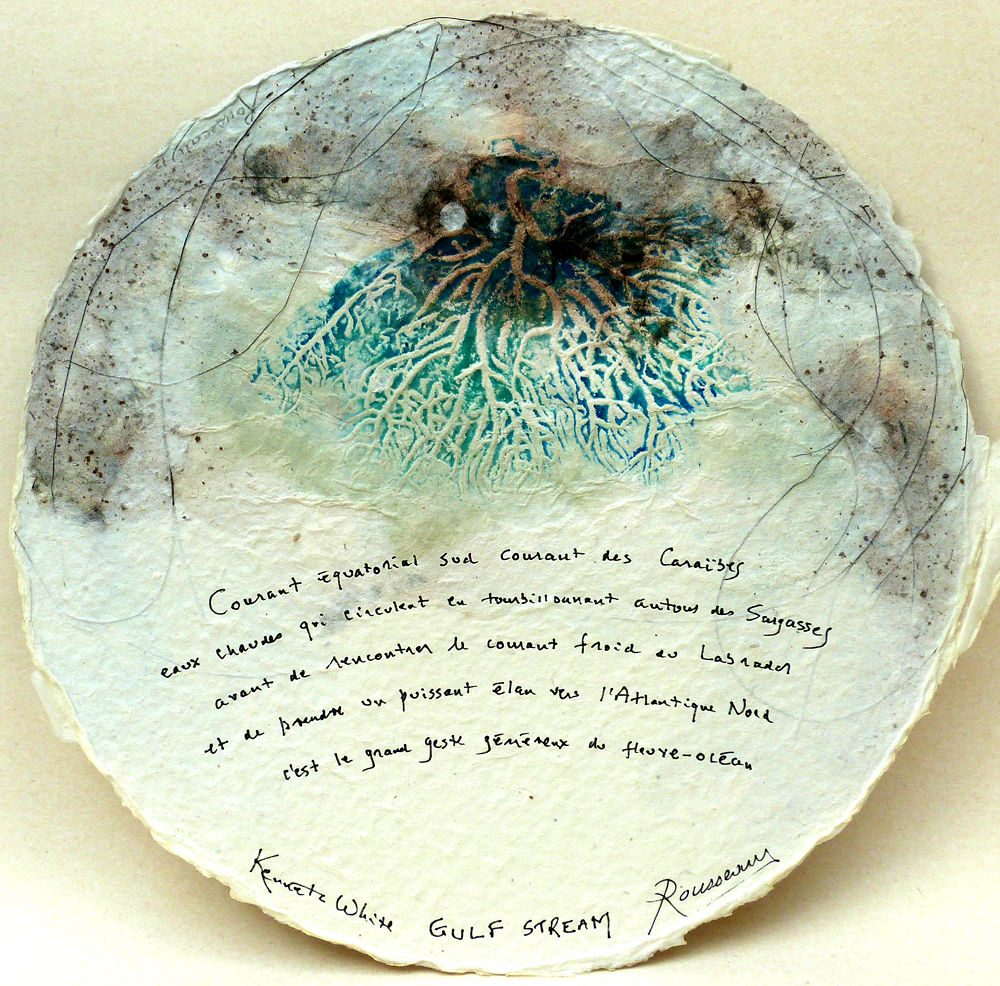 Courant équatorial sud courant des Caraïbes
eaux chaudes qui circulent en tourbillonnant autour des Sargasses
avant de rencontrer le courant froid du Labrador
et de prendre un puissant élan vers l'Atlantique Nord
c'est le grand geste généreux du fleuve-océan
Kenneth White GULF STREAM Rousseau